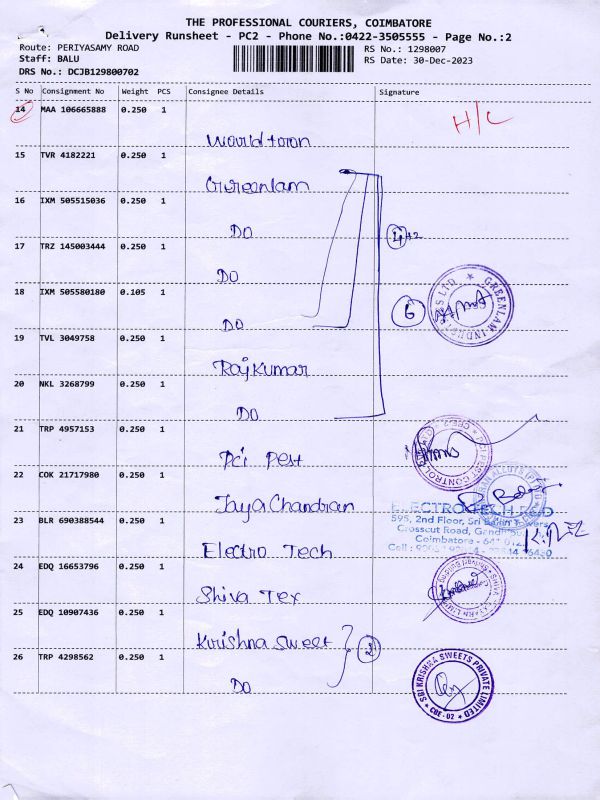 THE PROFESSIONAL COURIERS, COIMBATORE
Delivery Runsheet - PC2 - Phone No.:0422-3505555 - Page No.:2
Route: PERIYASAMY ROAD
Staff: BALU
DRS No.: DCJB129800702
RS No.: 1298007
RS Date: 30-Dec-2023
S No Consignment No Weight PCS Consignee Details Signature
14 MAA 106665888 0.250 1
H/C
World toron
15 TVR 4182221 0.250 1
Greenlam
16 IXM 505515036 0.250 1
DO
4+2
17 TRZ 145003444 0.250 1
DO
18 IXM 505580180 0.105 1
6
GREENLAM INDUSTRIES LTD.
DO
19 TVL 3049758 0.250 1
Rajkumar
20 NKL 3268799 0.250 1
DO
21 TRP 4957153 0.250 1
Pci Pest
PCI PEST CONTROL
22 COK 21717980 0.250 1
Jaya Chandran
ELECTRO TECH
595, 2nd Floor, Sri Towers
Crosscut Road,
Coimbatore - 641 012.
23 BLR 690388544 0.250 1
Electro Tech
24 EDQ 16653796 0.250 1
Shiva Tex
25 EDQ 10907436 0.250 1
Krishna Sweet
2
26 TRP 4298562 0.250 1
DO
SRI KRISHNA SWEETS PRIVATE LIMITED
CBE - 02